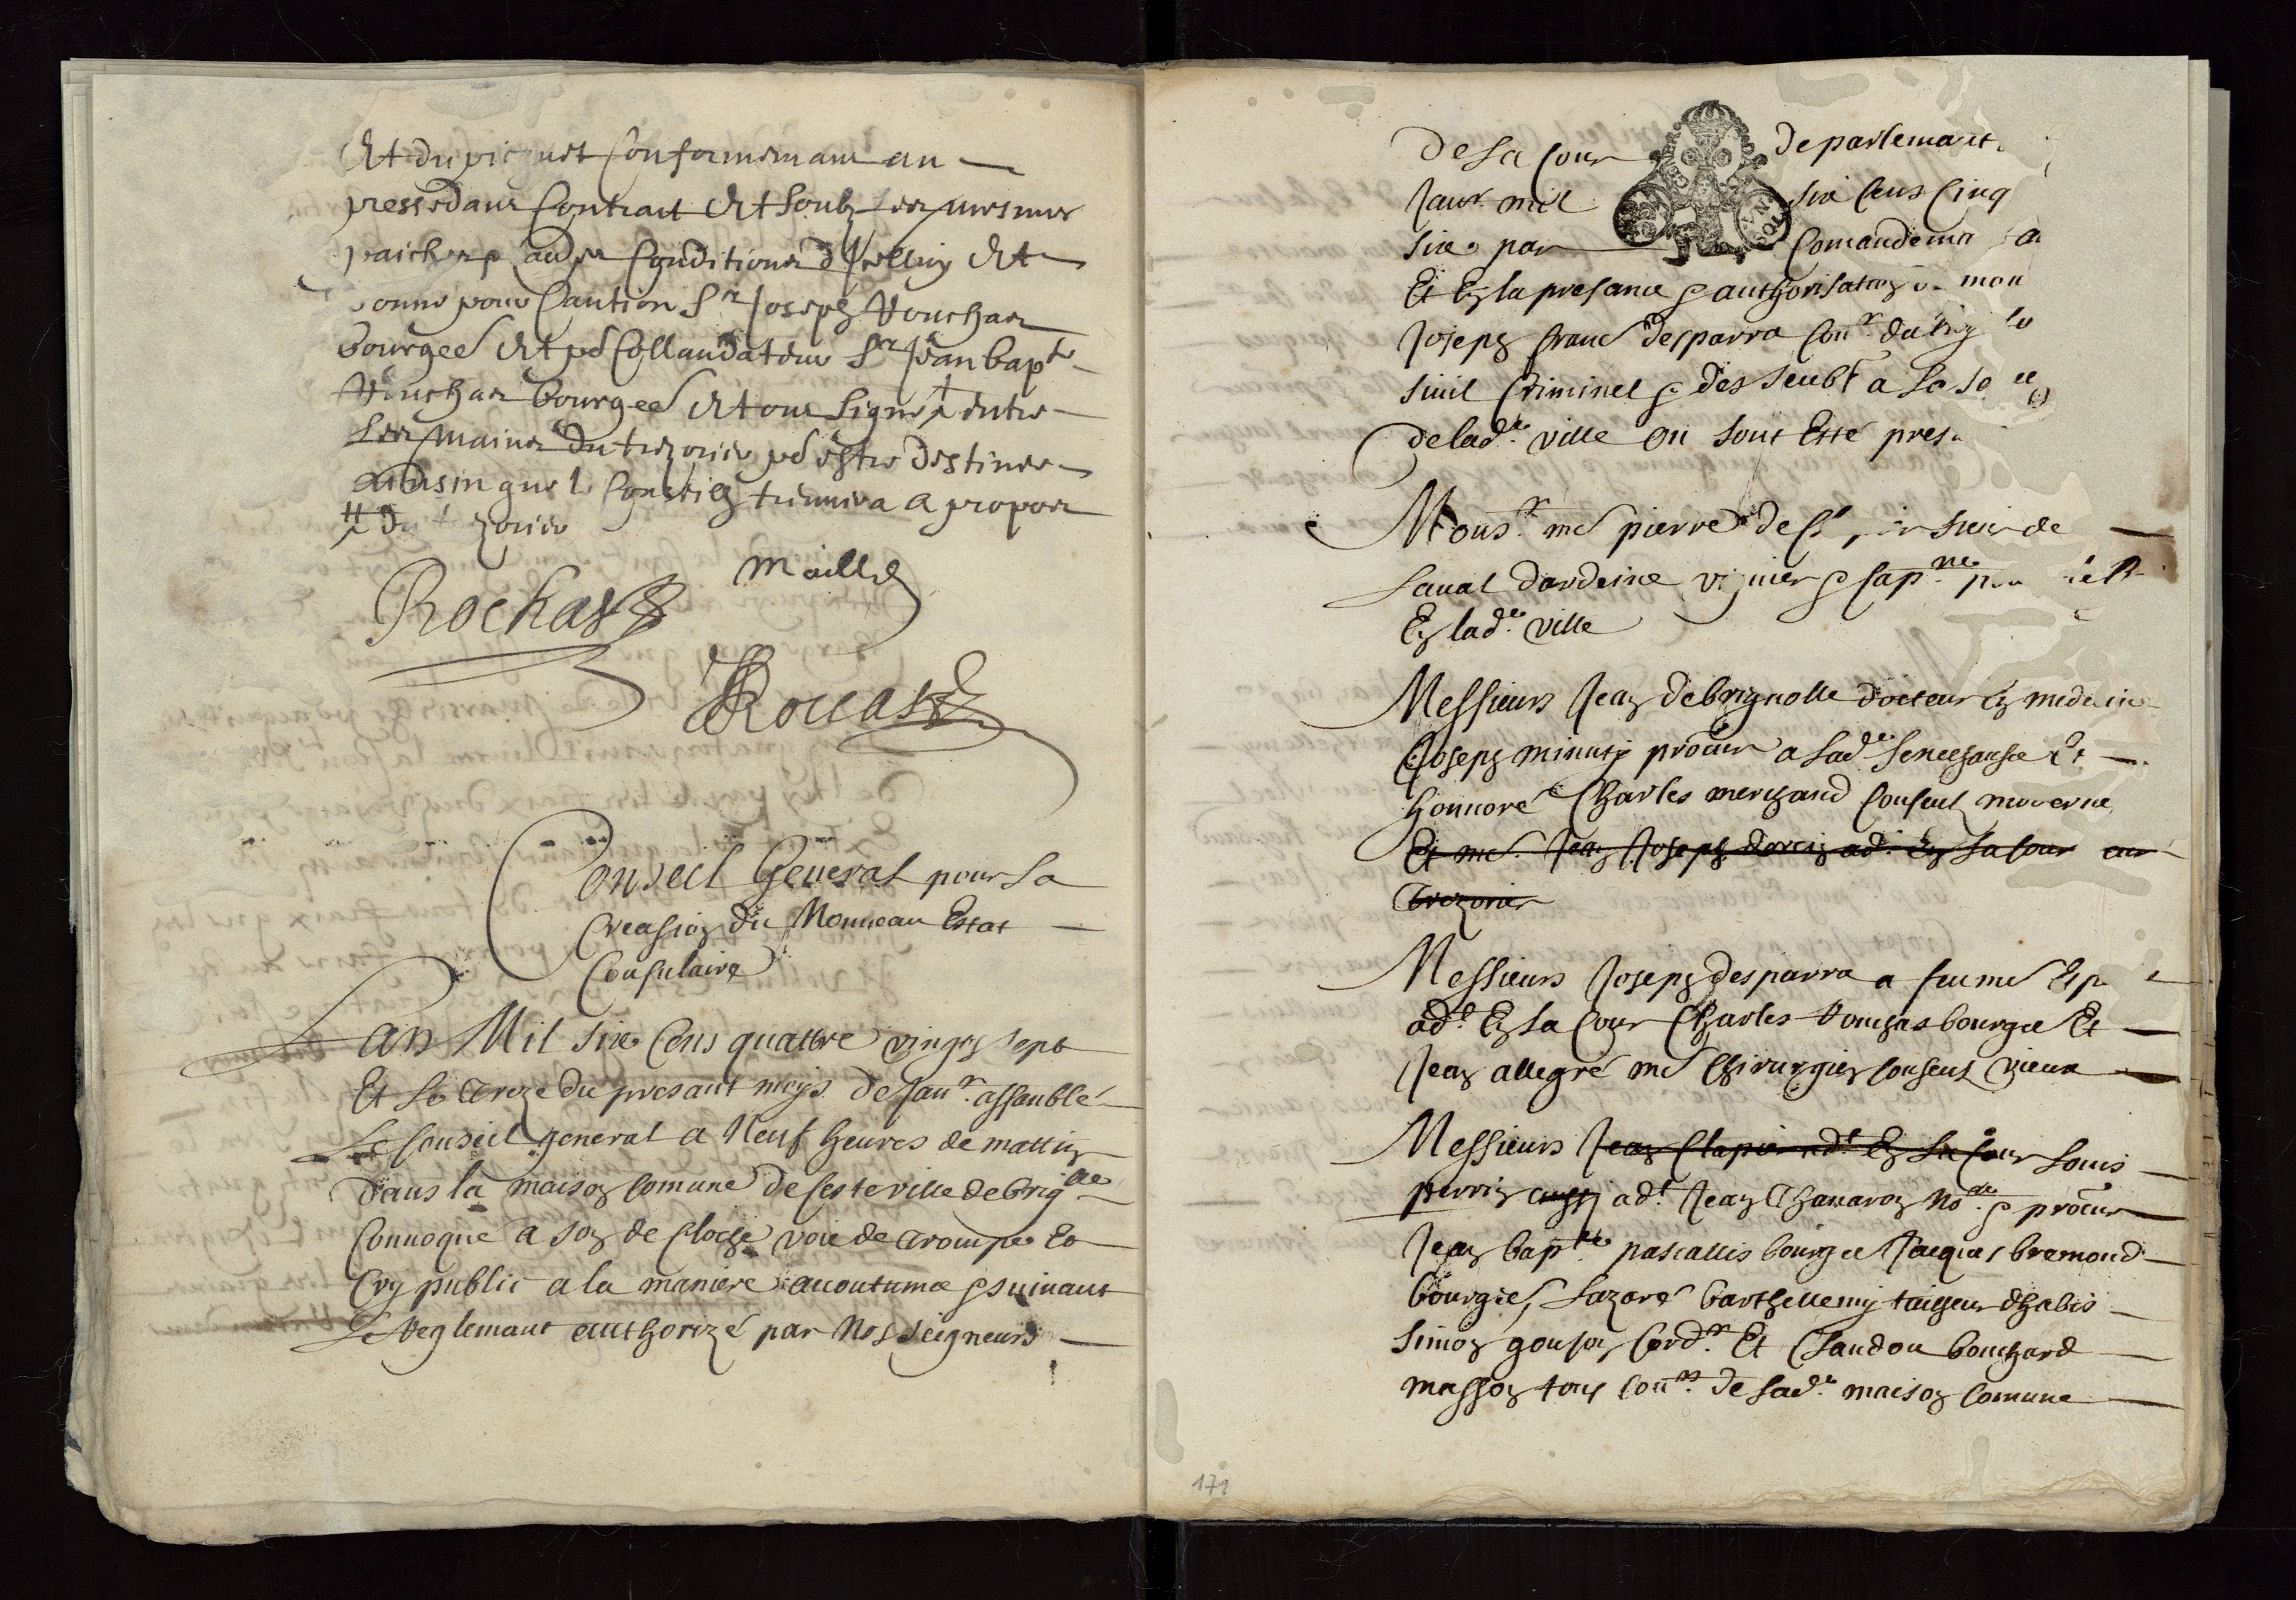 Et du picquet conformemant au
pressedant Contrait Et soubz les mesmes
paiches & Conditions dIcelluy Et
donne pour Caution Sr Joseph Houchas
bourgeé Et pr Collaudateur Sr Jean bapte
Houchas bourgeé Et ont signé Entre
les mains du trezorier pr estre destinée
ainsin que le Conseilh treuvera a propos
du trezorier
Rochas
Maille
Rouast
Conseil General pour la
Creasion du Nouveau Estat
Consulaire
Lan Mil six Cens quattre vingts sept
Et le treze du presant moys de Janr. assanblé
Le Conseil general a Neuf heures de mattin
dans la maison Comune de ceste ville de briglle
Convoqué a son de Cloche voie de trompe Et
Cry public a la maniere accoutumée & suivant
Le Reglemant authorizé par Nosseigneurs
De la Cour de parlemant
Janr. mil six Cens Cinq
six par Comandema
Et En la presance & authorisation mon
Joseph franc desparra Conr. du Roy
sivil Criminel & des
de lade. ville ou sont Esté pres
Monsr. me pierre de
Laval dardeine viguier & Capne.
En lade. ville
Messieurs Jean de brignolle docteur En medecin
Joseph minuty procur a lade. senechaussé Et
honnoré Charles merchand Conseul moverne
Et me. Jean Joseph dorcin adt. En la Cour
trezorier
Messieurs Joseph desparra a feu me Esp
adt. En la Cour Charles Houchas bourgeé Et
Jean allegre me Chirurgien Conseul vieux
Messieurs Jean Clapier adt En la Cour Louis
perrin aussy adt Jean Chavaron Nore. & procur
Jean bapte pascallis bourgeé Jacques bremond
bourgeé, Lazare barthellemy tailleur dhabis
simon goujon Cordr. Et Claudou bouchard
masson tous Conrs. de lade. maison Comune
171